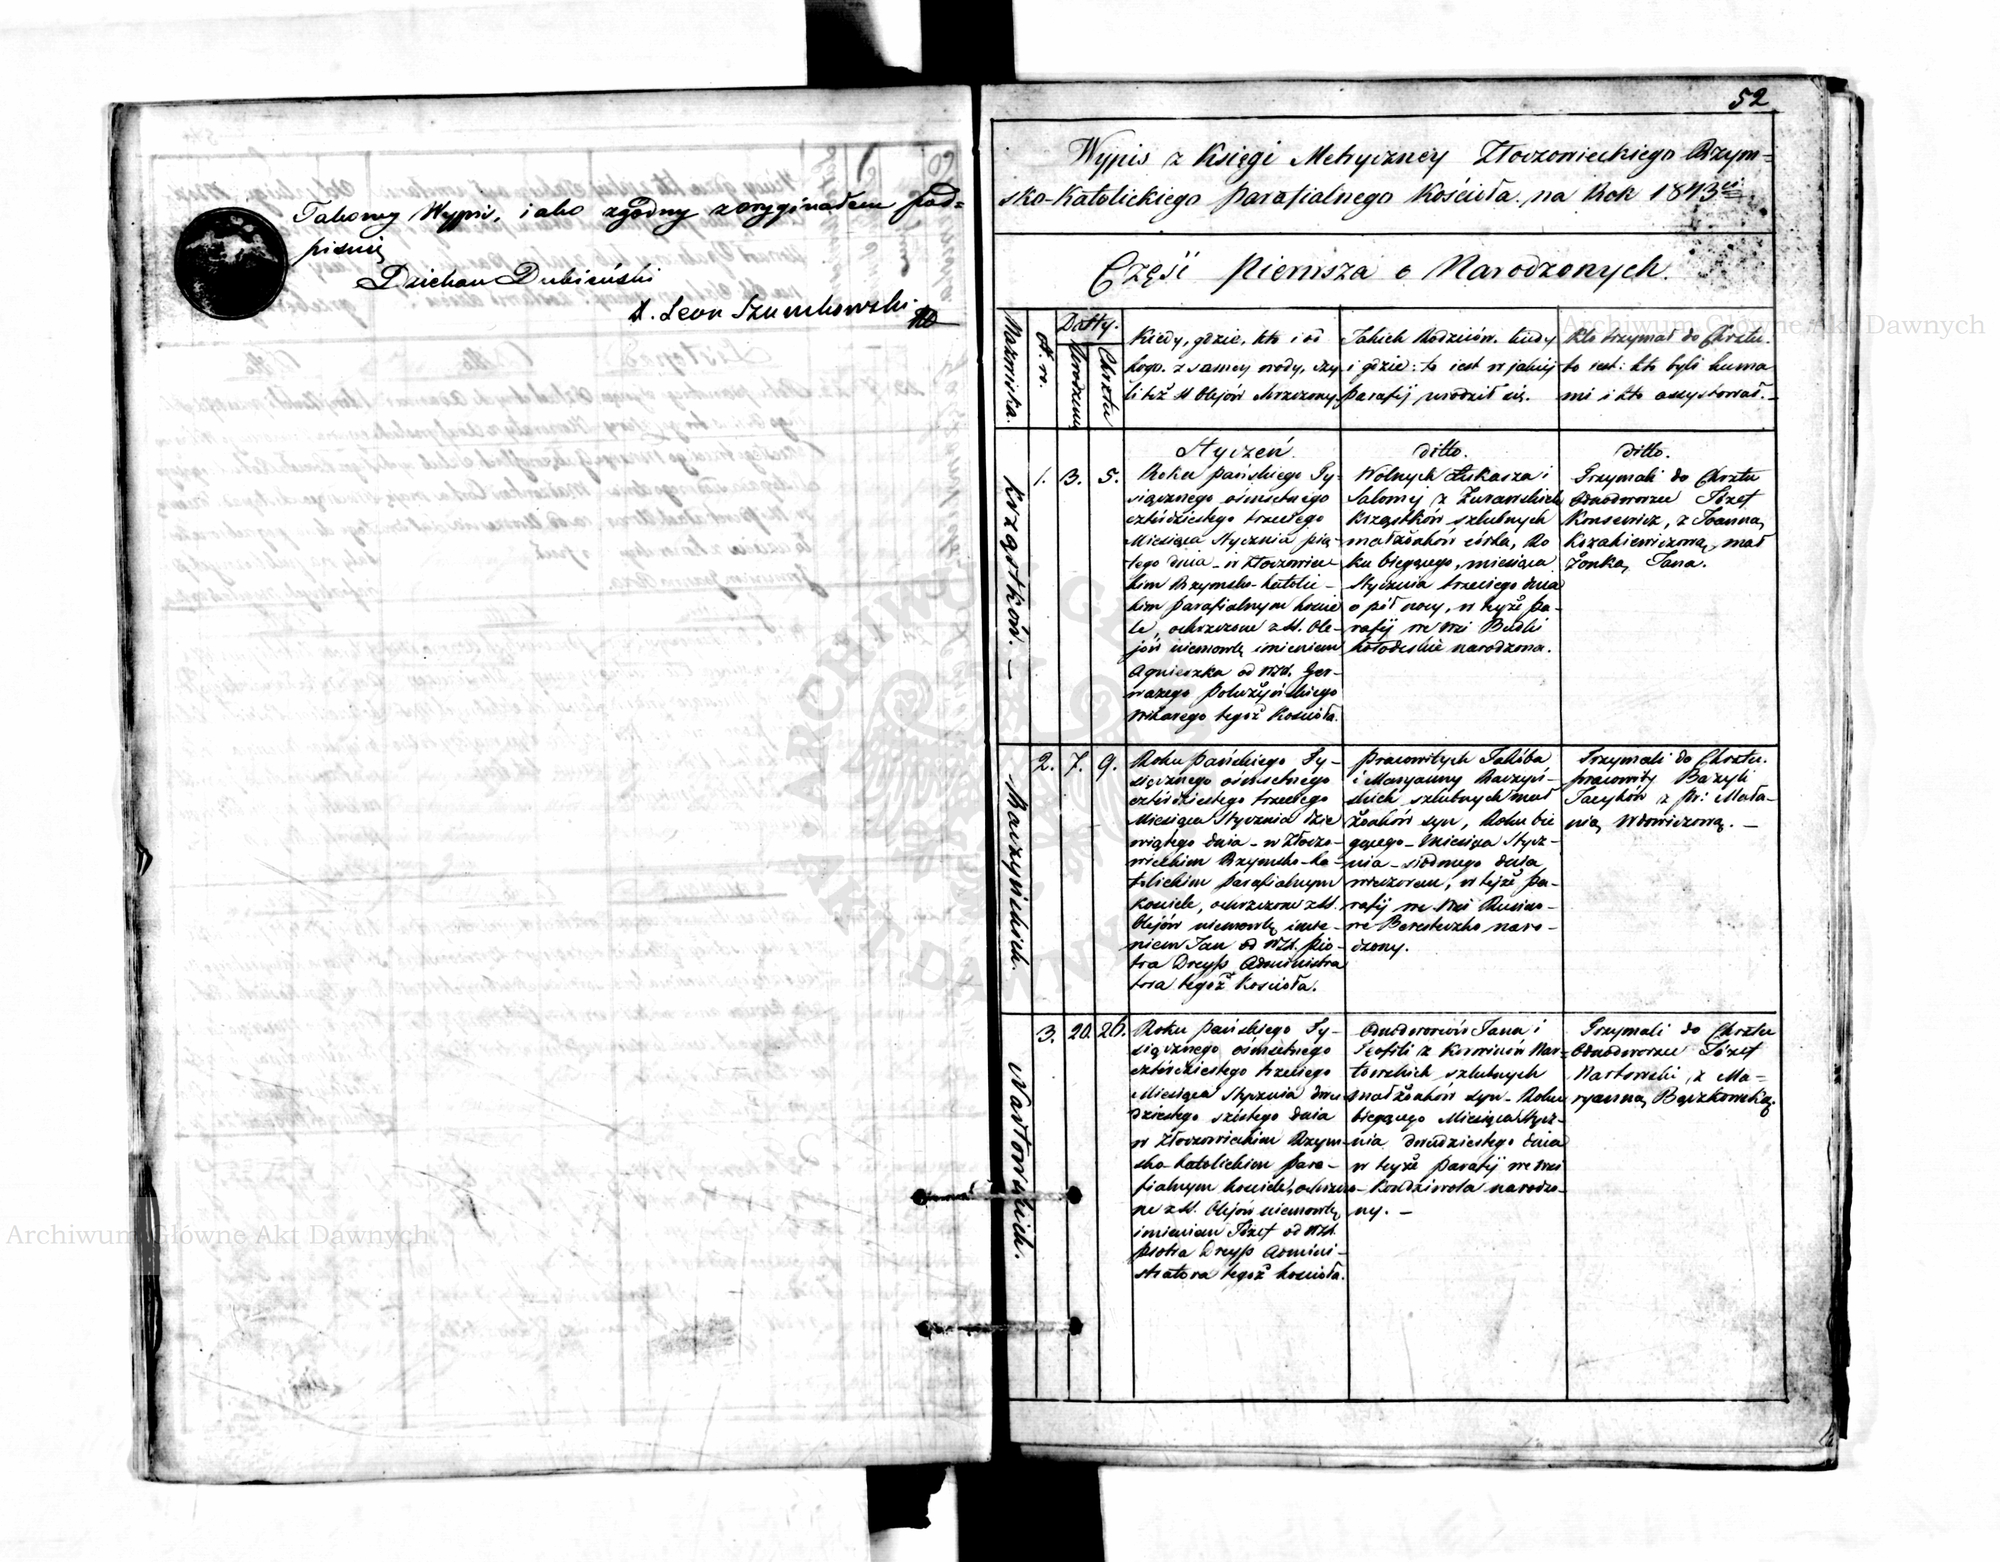 Takowy Wypis, iako zgodny z oryginałem pod=
pisuię
Dziekan Dubiński
X. Leon Szumkowski.
52
Wypis z Księgi Metryczney Złoczowieckiego Rzym=
sko-Katolickiego Parafialnego Kościoła na Rok 1843
Część Pierwsza o Narodzonych.
Nazwiska.
N. ro.
Datty.
Urodzenia
Chrztu
Kiedy, gdzie, kto i od
kogo. z samey wody, czy
li też SS Olejów chrzczony.
Jakich Rodziców. kiedy
i gdzie: to iest w jakiej
Parafij urodził się.
Kto trzymał do Chrztu.
to iest: kto byli kuma
mi i kto assystował.-
Krząstków. -
1. 3. 5.
Styczeń.
Roku Pańskiego Ty-
siącznego ośmsetnego
czterdziestego trzeciego
Miesiąca Stycznia pią-
tego dnia - w Złoczowiec-
kim Rzymsko-katolic-
kim Parafialnym koscie
le, ochrzczone z SS. Ole-
jów niemowlę imieniem
Agnieszka od WXd. Ger-
wazego
Wikarego tegoż Kościoła.
ditto.
Wolnych Łukasza i
Salomej z Żurawskich
Krząstków szlubnych
małżonków córka, Ro
ku bieżącego, miesiąca
Stycznia trzeciego dnia
o pół nocy, w tejże Pa-
rafij we wsi Budki
kołodeskie narodzona.
ditto.
Trzymali do Chrztu
Odnodworzec Józef
Konsewicz, z Joanną
Krzakiewiczową, mał
żonką Jana.
Raczyńskich.
2. 7. 9.
Roku Pańskiego Ty-
siącznego ośmsetnego
czterdziestego trzeciego
Miesiąca Stycznia dzie
wiątego dnia - w Złoczo-
wieckim Rzymsko-ka-
tolickim Parafialnym
Kościele, ochrzczone z SS.
Olejów niemowlę imie-
niem Jan od WXd. Pio-
tra Dreyss Administra
tora tegoż Kościoła.
Pracowitych Jakóba
i Maryanny Raczyń-
skich szlubnych mał
żonków syn, Roku bie
żącego - Miesiąca Stycz-
nia - siódmego dnia
wieczorem, w tejże Pa-
rafij we wsi
we Beresteczko naro-
dzony.
Trzymali do Chrztu.
pracowity Bazyli
Jacyków z Pr: Mała-
nią Wdowiczową. -
Nartowskich.
3. 20. 26.
Roku Pańskiego Ty-
siącznego ośmsetnego
czterdziestego trzeciego
Miesiąca Stycznia dwu
dziestego szóstego dnia
w Złoczowieckim Rzym-
sko-katolickim Para-
fialnym kosciele, ochrzczo-
ne z SS. Olejów niemowlę
imieniem Józef od WXd.
Piotra Dreyss Admini-
stratora tegoż kościoła.
Odnodworców Jana i
Teofili z Korwinów Nar-
towskich szlubnych
małżonków syn - Roku
bieżącego Miesiąca Stycz-
nia dwudziestego dnia
w tejże Parafij we wsi
narodzo-
ny. -
Trzymali do Chrztu
Odnodworzec Józef
Nartowski, z Ma-
ryanną Bączkowską.
Archiwum Główne Akt Dawnych
Archiwum Główne Akt Dawnych